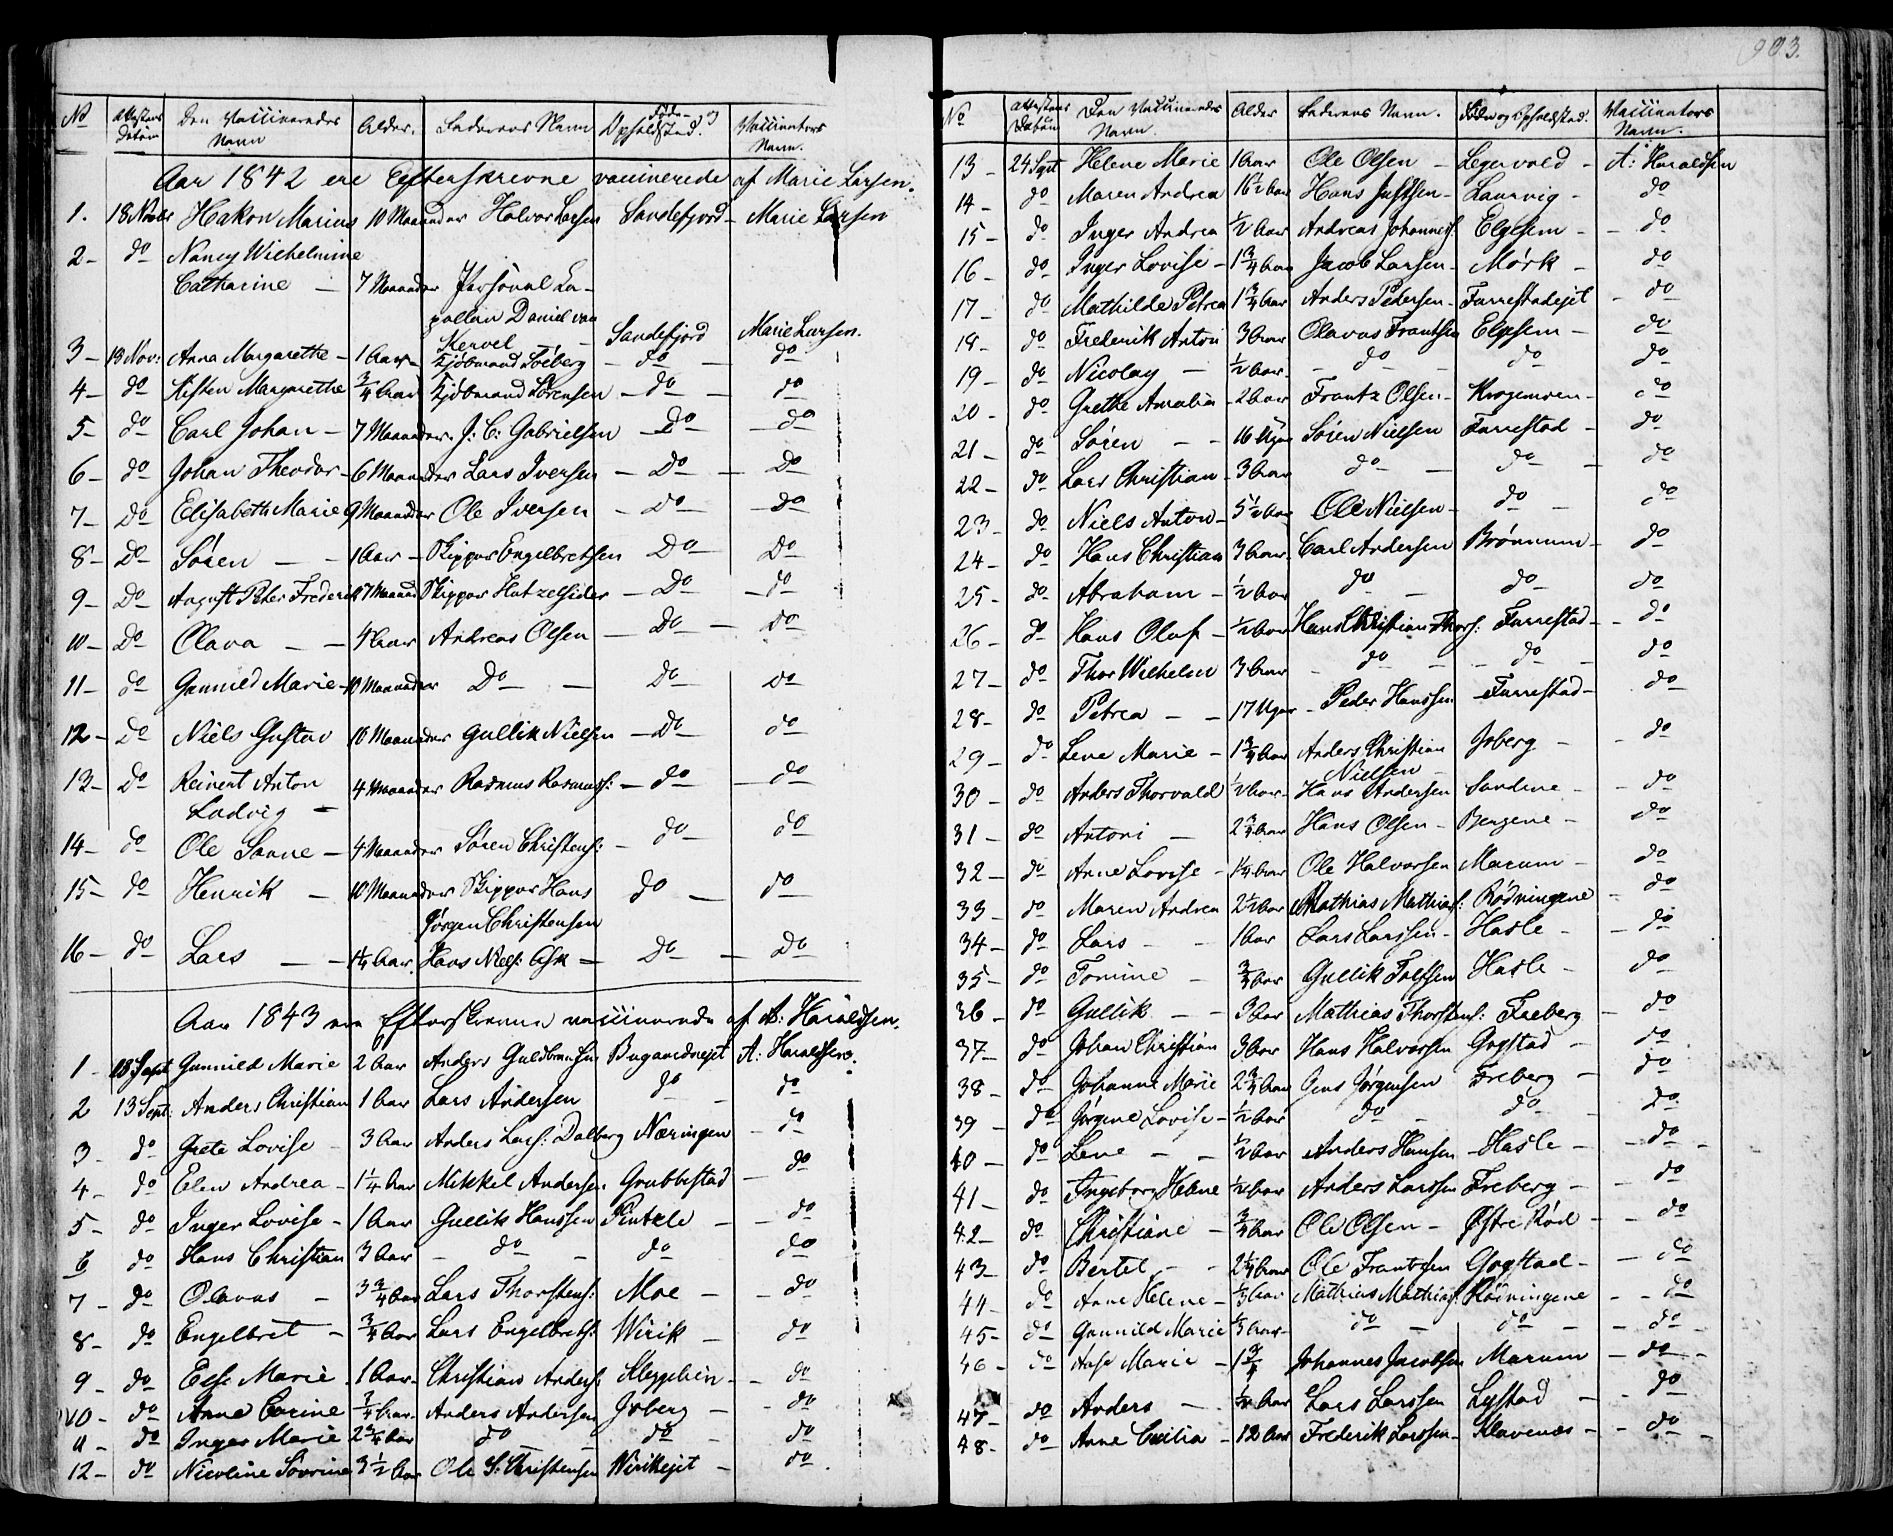 903.
No Attestens Datum Den Vaccineredes Navn Alder. Faderens Navn Føde- og Opholdsted. Vaccinators Navn.
Aar 1842 ere Efterskrevne vaccinerede af Marie Larsen.
1. 18 Novbr Hakon Marius 10 Maaneder Halvor Larsen Sandefjord - Marie Larsen
2 - do Nancy Wilhelmine
Catharine - 7 Maaneder Personel Ca-
pellan Daniel van
Kervel - Sandefjord Marie Larsen.
3 - 13 Nov: Anna Margarethe - 1 Aar - Kjöbmand Söeberg - do - do
4 - do Kisten Margarethe 3/4 Aar Kjöbmand Sörensen - do - do
5 - do Carl Johan - 7 Maaneder J: C: Gabrielsen - Do - do
6 - do Johan Theodor - 6 Maaneder Lars Iversen - Do - Do
7 - Do Elisabeth Marie 9 Maaneder Ole Iversen - Do - Do
8 - Do Sören - - 1 Aar - Skipper Engelbretsen Do - Do
9 - Do August Peter Frederik 7 Maaned Skipper Hatzelsider - Do - do
10 - Do Olava - - 4 Aar Andreas Olsen - Do - Do
11 - do Gunnild Marie - 10 Maaneder Do - Do - Do
12 - Do Niels Gustav 10 Maaneder Gullik Nielsen - Do - do
13 - Do Reinert Anton 4 Maaneder Rasmus Rasmuss: - do - do
Ludvig -
14 - do Ole Sanne - 4 Maaneder Sören Christens: - do - do
15 - do Henrik - 10 Maaneder Skipper Hans do - do
Jörgen Christensen
16 - do Lars - - 1 1/4 Aar. Hans Niels: Ask - Do - Do
Aar 1843 ere Efterskrevne vaccinerede af A: Haraldsen.
1 - 13 Sept Gunnild Marie 2 Aar Anders Guldbransen Bugaardsejet A: Haraldsen.
2 13 Sept: Anders Christian 1 Aar Lars Andersen do - do
3 - do Grete Lovise - 3 Aar Anders Lars: Dalberg Næringen - do
4 - do Elen Andrea - 1 1/4 Aar Mikkel Andersen Grubbestad - do
5 - do Inger Lovise - 1 Aar Gullik Hanssen Pintzle - - do
6 do Hans Christian 3 Aar - do - do do
7 - do Olavus - 3 3/4 Aar Lars Thorstens: Moe - - do
8 - do Engelbret - 3/4 Aar Lars Engelbrets: Wirik - do
9 - do Else Marie 1 Aar - Christian Anders: Kleppehin - - do
10 - do Anne Corine 3/4 Aar - Anders Andersen Joberg - - do
11 - do Inger Marie 2 3/4 Aar do - do - do
12 - do Nicoline Sovrine 3 1/2 Aar Ole S: Christensen Wirikejet - do
No Attestens Datum Den Vaccineredes Navn Alder Faderens Navn. Føde og Opholdsted. Vaccinators Navn.
13 - 24 Sept Helene Marie 1 Aar Ole Olsen - Legervold - A: Haraldsen
14 - do Maren Andrea 16 1/2 Aar Hans Justsen - Laurvig - do
15 - do Inger Andrea 1/2 Aar Andreas Johanness: Elgesem - - do
16 - do Inger Lovise - 1 3/4 Aar Jacob Larsen - Mörk - do
17 - do Mathilde Petrea 1 3/4 Aar Anders Pedersen - Furrestadejet - do
18 - do Frederik Anton 3 Aar Olavus Frantsen Elgesem - do
19 - do Nicolay - 1/2 Aar - do - do do
20 - do Grethe Amalia - 2 Aar Frantz Olsen - Krogemoen - do
21 - do Sören - - 16 Uger Sören Nielsen Furrestad - do
22 - do Lars Christian - 3 Aar do - do - do
23 - do Niels Anton - 5 1/2 Aar Ole Nielsen - do - do
24 - do Hans Christian 3 Aar - Carl Andersen Brönnum - do
25 - do Abraham - 1/2 Aar do do - do
26 - do Hans Oluf - 1/2 Aar Hans Christian Thors: Furrestad - - do
27 - do Thor Wilhelm 3 Aar - do - - do - do
28 - do Petrea - - 17 Uger - Peder Hanssen - Furrestad - do
29 - do Lene Marie - 1 3/4 Aar Anders Christian Joberg - - do
Nielsen -
30 - do Anders Thorvald 1/2 Aar - Hans Andersen Sandene - - do
31 - do Antoni - 2 3/4 Aar Hans Olsen - Bergene - do
32 - do Anne Lovise - 1/4 Aar Ole Halvorsen Marum - do
33 - do Maren Andrea 2 1/2 Aar Mathias Mathias: Rödningene - do
34 - do Lars - - 1 Aar Lars Larssen - Hasle - - do
35 - do Tomine - 3/4 Aar Gullik Tolfsen Hasle - do
36 - do Gullik - - 3 Aar Mathias Thorstens: Freberg - do
37 - do Johan Christian 3 Aar Hans Halvorsen Gogstad - do
38 - do Johanne Marie 2 3/4 Aar Jens Jörgensen Freberg - do
39 - do Jörgine Lovise - 1/2 Aar do - do - Do
40 - do Lene - - 1/2 Aar Anders Hansen - Hasle - - do -
41 - do Ingeborg Helene 1/2 Aar Anders Larssen Freberg - - do
42 - do Christiane - 3/4 Aar Ole Olsen - Østre Röd - - do
43 - do Bertel - - 2 1/4 Aar Ole Frantzsen Gogstad - - do
44 - do Anne Helene - 1/3 Aar Mathias Mathias: Rödningene - - do
45 - do Gunnild Marie 1/3 Aar - do - do - - do -
46 - do Aase Marie - 1 3/4 Johannes Jacobsen Marum - do -
47 - do Anders - - 1/2 Aar Lars Larssen Lystad - - do
48 - do Anne Cecilia - 12 Aar Frederik Larssen - Klavenæs - - do -